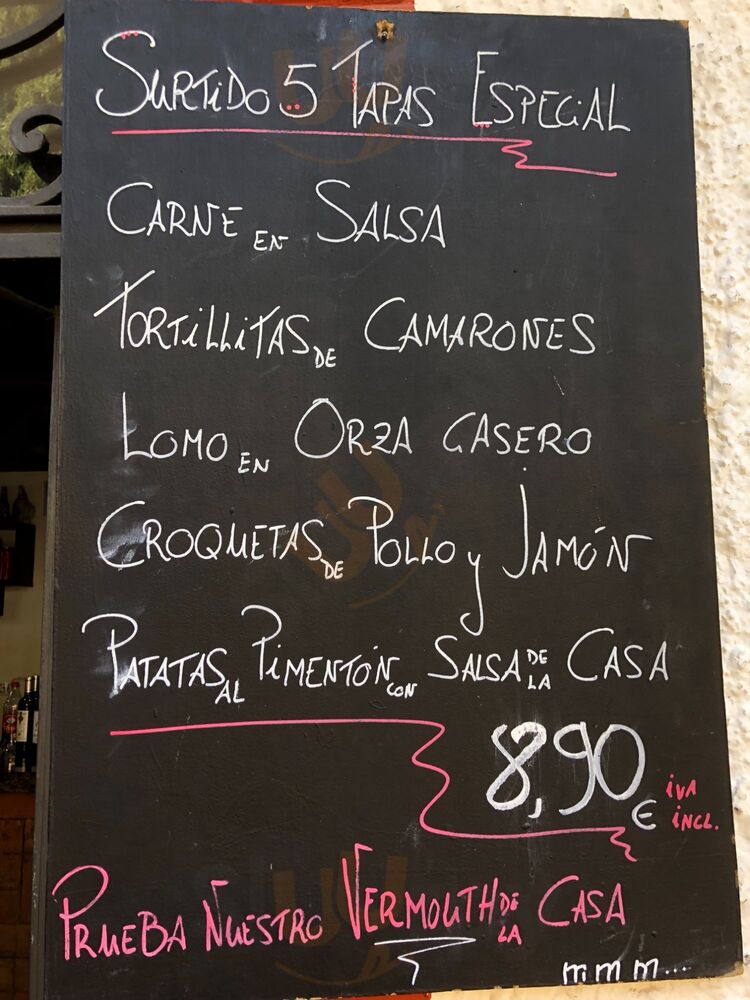 SURTIDO 5 TAPAS ESPECIAL
CARNE EN SALSA
TORTILLITAS DE CAMARONES
LOMO EN ORZA CASERO
CROQUETAS DE POLLO y JAMÓN
PATATAS AL PIMENTÓN CON SALSA DE LA CASA
8,90 € iVA iNCL.
PRUEBA NUESTRO VERMOUTH DE LA CASA
m m m....